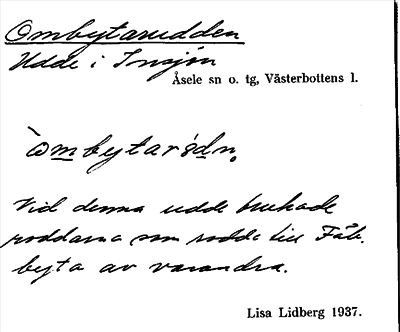 Ombytarudden
Udde i Insjön
Åsele sn o. tg, Västerbottens l.
òmbytarúdn.
Vid denna udde brukade
roddarna som rodde till Fåb.
byta av varandra.
Lisa Lidberg 1937.